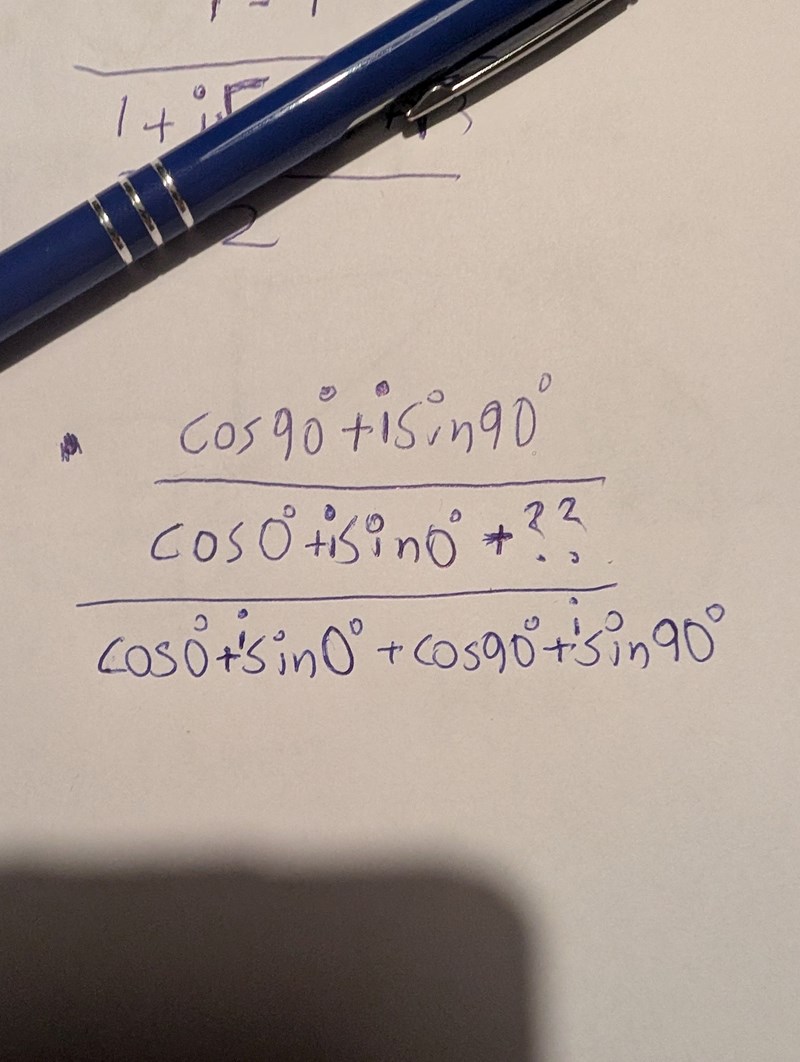 1 + i
2
cos90° + isin90°
cos0° + isin0° + ??
cos0° + isin0° + cos90° + isin90°